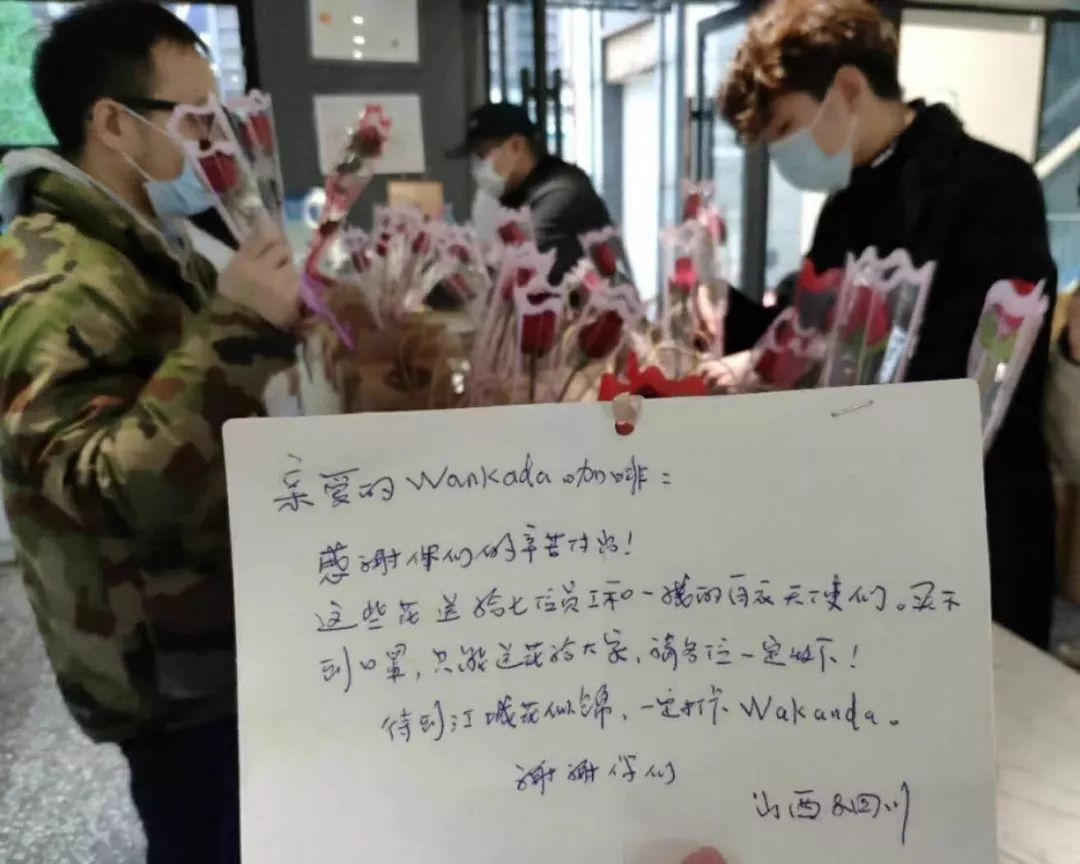 亲爱的Wankada咖啡:
感谢你们的辛苦付出!
这些花送给七位员工和一线的白衣天使们。买不
到口罩,只能送花给大家,请各位一定收下!
待到江城花似锦,一定打卡Wakanda。
谢谢你们
山西&四川